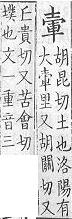 胡昆切土也洛陽有
大里又胡關切又
丘貴切又苦會切
墣也文一重音三